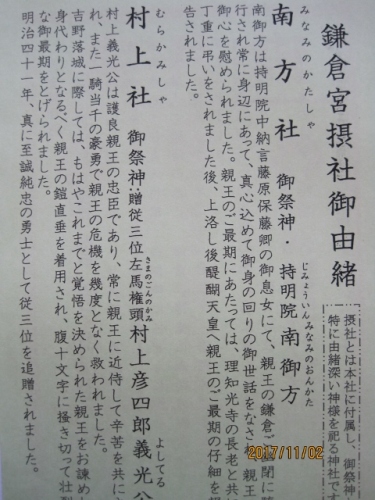 鎌倉宮摂社御由緒
摂社とは本社に付属し、御祭神
特に由緒深い神様を祀る神社です
みなみのかたしゃ
南方社 御祭神・持明院南御方
じみょういんみなみのおんかた
南御方は持明院中納言藤原保藤卿の御息女にて、親王の鎌倉ご幽閉に
行され常に身辺にあって、真心込めて御身の回りの御世話をなさ
御心を慰められました。親王のご最期にあたっては、理知光寺の長老と共
丁重に弔いをされました後、上洛し後醍醐天皇へ親王のご最期の仔細を
むらかみしゃ
村上社 御祭神・贈従三位左馬権頭村上彦四郎義光公
さまのごんのかみ
よしてる
村上義光公は護良親王の忠臣であり、常に親王に近侍して辛苦を共に
れ、また一騎当千の豪勇で親王の危機を幾度となく救われました。
吉野落城に際しては、もはやこれまでと覚悟を決められた親王をお諫め
身代わりとなるべく親王の鎧直垂を着用され、腹十文字に掻き切って壮
な御最期をとげられました。
明治四十一年、真に至誠純忠の勇士として従三位を追贈されました。
2017/11/02